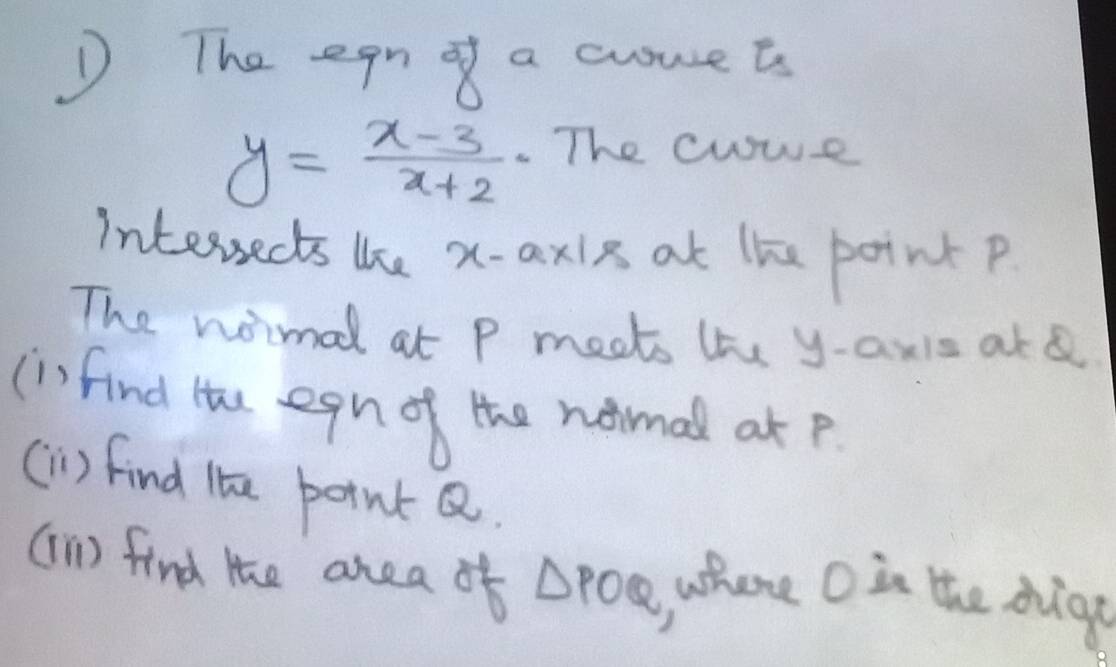 1) The eqn of a curve is
y = (x-3)/(x+2). The curve
intersects the x-axis at the point P.
The normal at P meets the y-axis at Q.
(i) find the eqn of the normal at P.
(ii) find the point Q.
(iii) find the area of ΔPOQ, where O is the orig